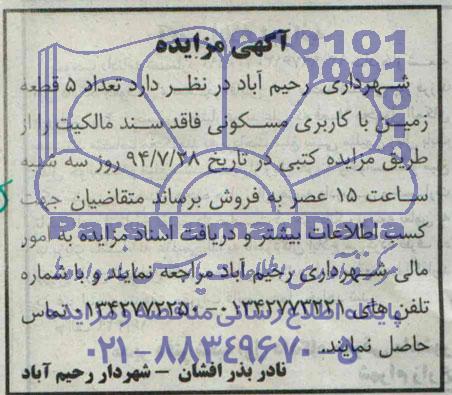 آگهی مزایده
شهرداری رحیم آباد در نظر دارد تعداد ۵ قطعه
زمین با کاربری مسکونی فاقد سند مالکیت را از
طریق مزایده کتبی در تاریخ ۹۴/۷/۲۸ روز سه شنبه
ساعت ۱۵ عصر به فروش برساند متقاضیان جهت
کسب اطلاعات بیشتر و دریافت اسناد مزایده به امور
مالی شهرداری رحیم آباد مراجعه نمایند و با شماره
تلفن های ۰۱۳۴۲۷۷۳۲۲۱ - ۰۱۳۴۲۷۷۲۲۵۰ تماس
حاصل نمایند.
نادر بذر افشان – شهردار رحیم آباد
ParsNamadData
پایگاه اطلاع رسانی مناقصه و مزایده
۰۲۱-۸۸۳۴۹۶۷۰-۵